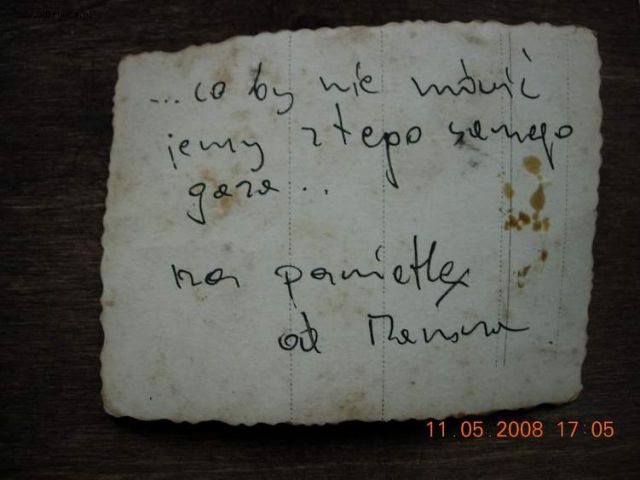 ...co by nie mówić
jemy z tego samego
gara...
na pamiętkę
od
11.05.2008 17:05